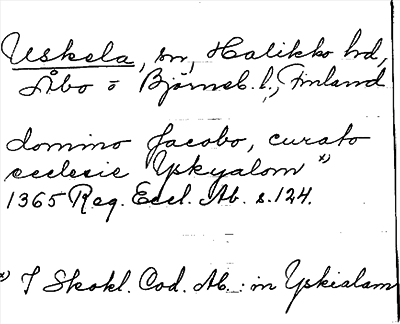 Uskela, sn, Halikko hd,
Åbo o Björneb. l., Finland
domino Jacobo, curato
ecclesie Yskyalom x)
1365 Reg. Eccl. Ab. s. 124.
x) I Skokl. Cod. Ab.: in Yskialam